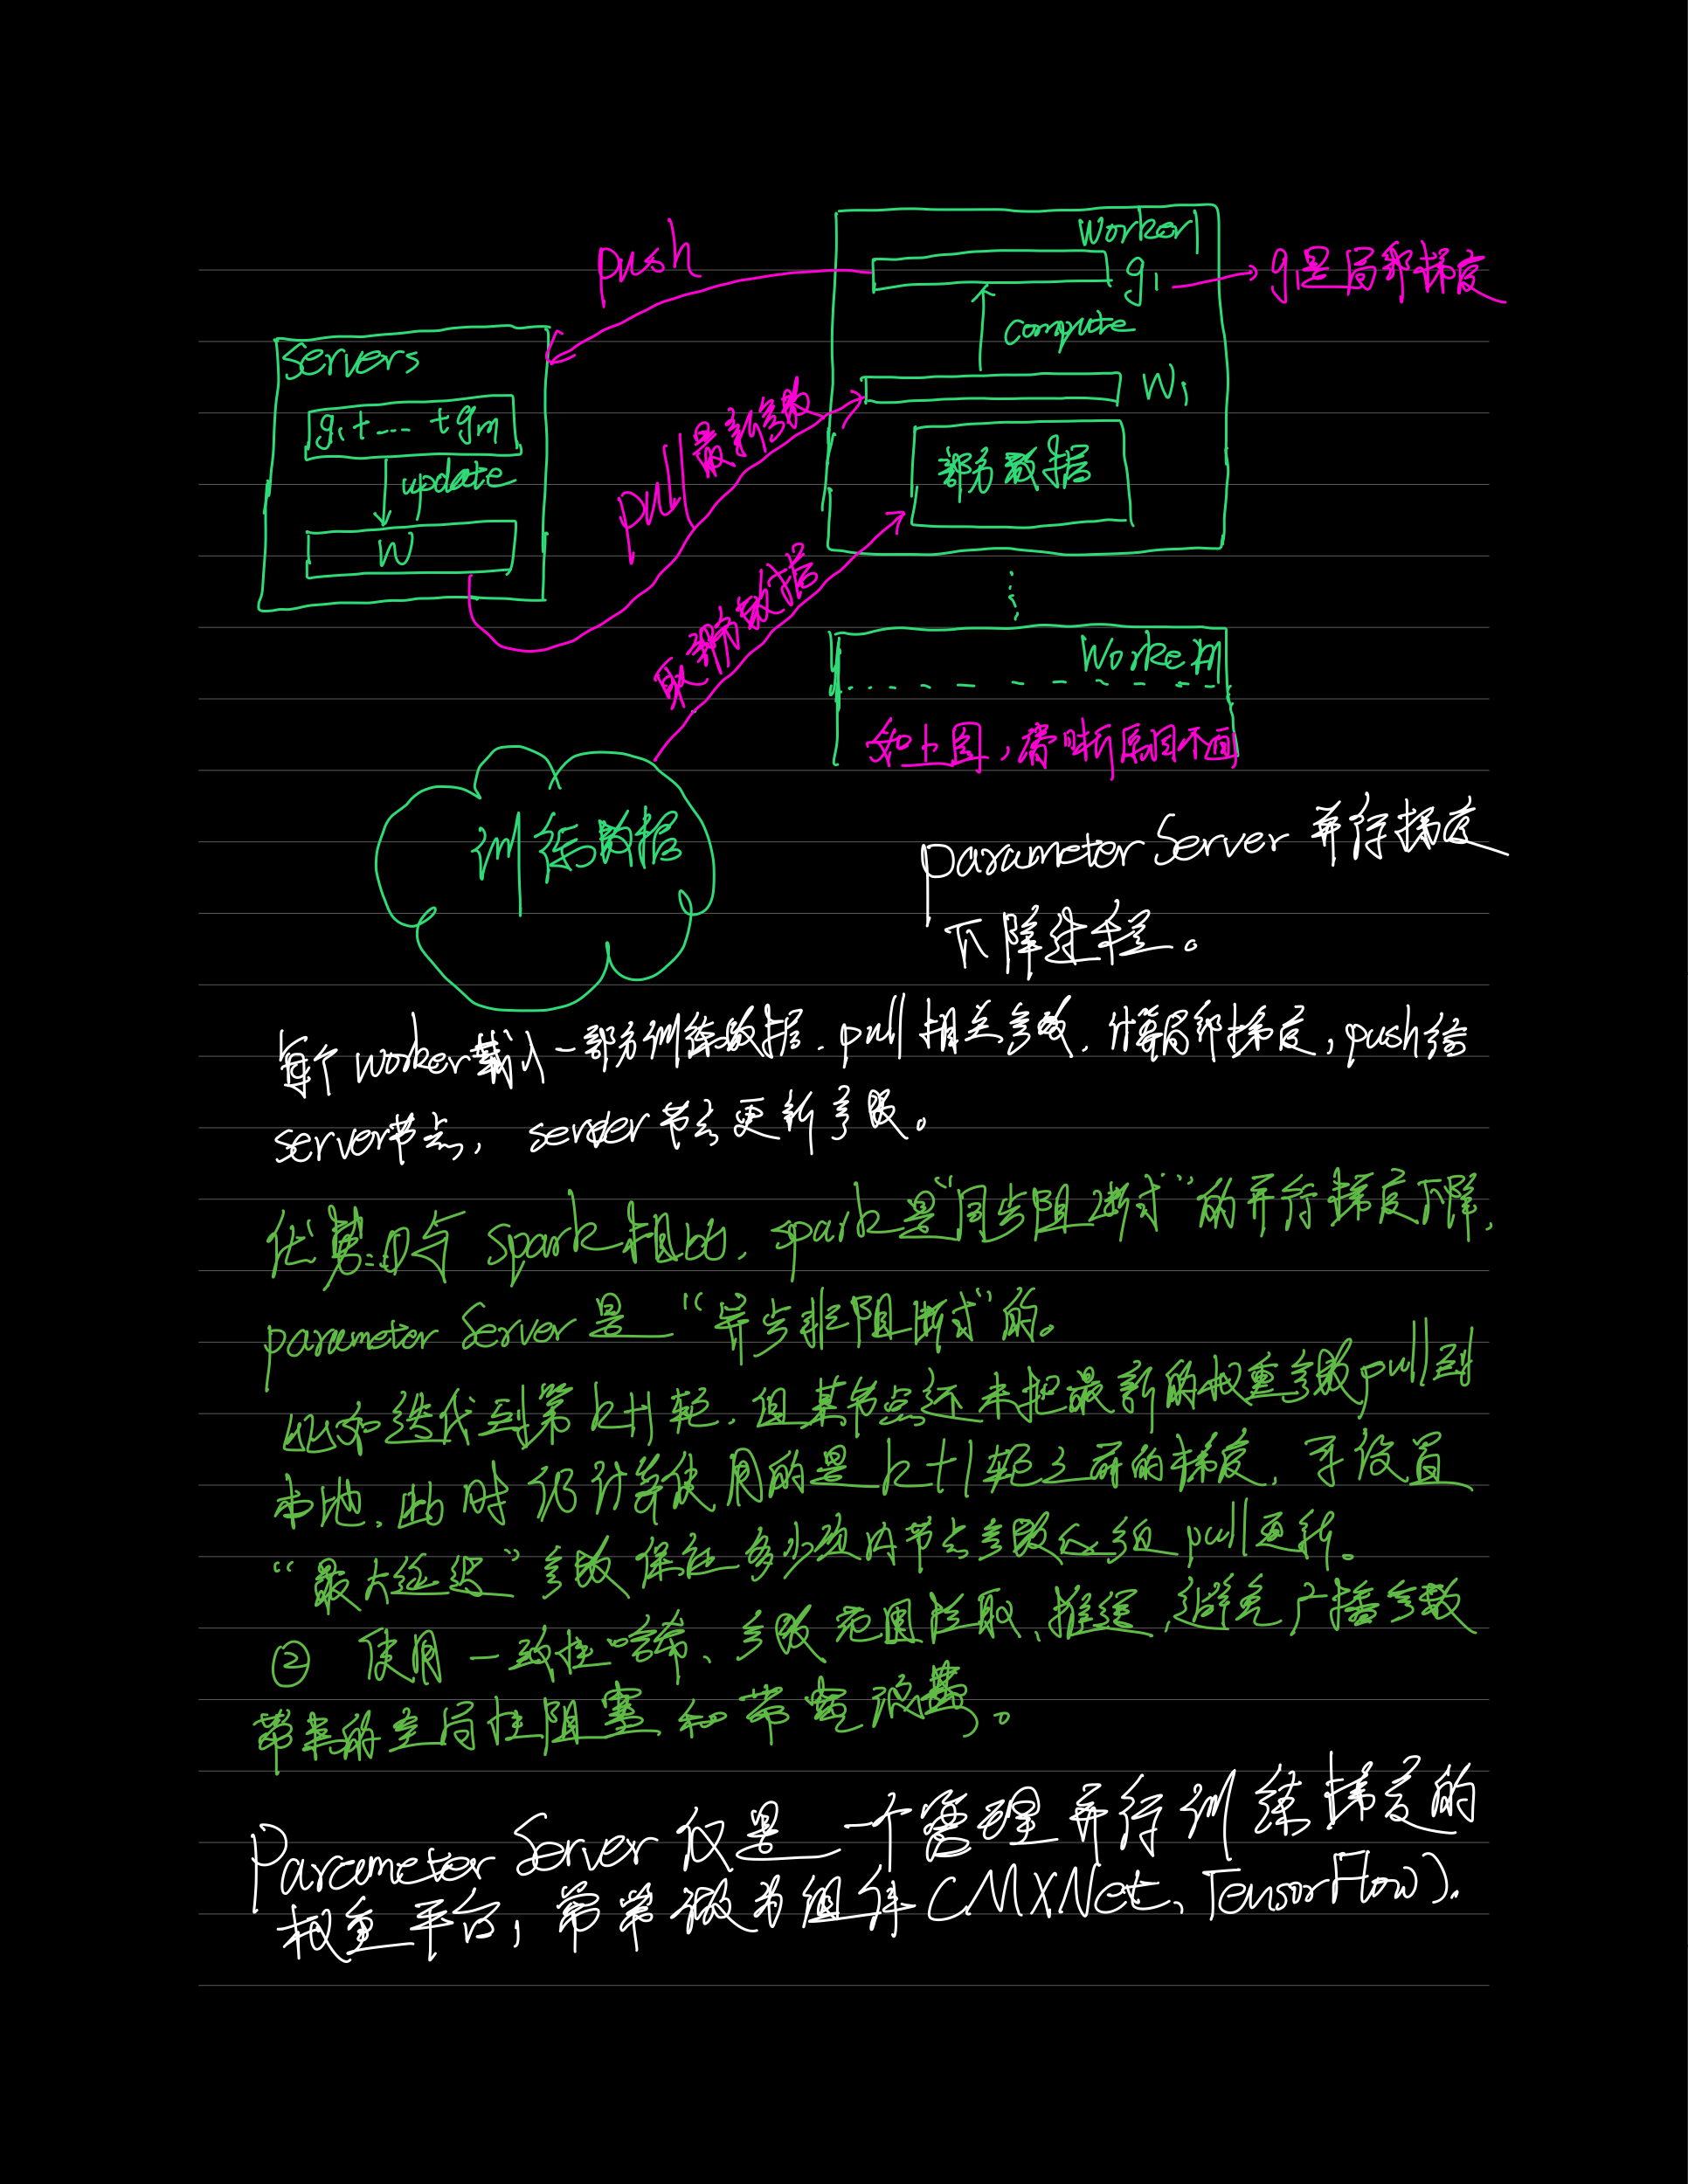 push
Worker1
g1
g1是局部梯度
compute
Servers
g1+...+gm
update
W
pull最新参数
W1
部分数据
取部分数据
Workerm
如上图,需
训练数据
parameter Server 并行梯度
下降过程。
每个worker载入一部分训练数据.pull相关参数.计算局部梯度,push给
server节点, server节点更新参数。
优势:①与Spark相比,spark是“同步阻断式”的并行梯度下降,
parameter Server是“异步非阻断式”的。
比如迭代到第k+1轮.但某节点还未把最新的权重参数pull到
本地.此时仍计算使用的是k+1轮之前的梯度.可设置
“最大延迟”参数保证多少轮内节点参数必须pull更新。
② 使用一致性哈希、参数范围拉取、推送,避免广播参数
带来的全局性阻塞和带宽浪费。
Parameter Server仅是一个管理并行训练梯度的
权重平台,常常做为组件(MXNet、TensorFlow).